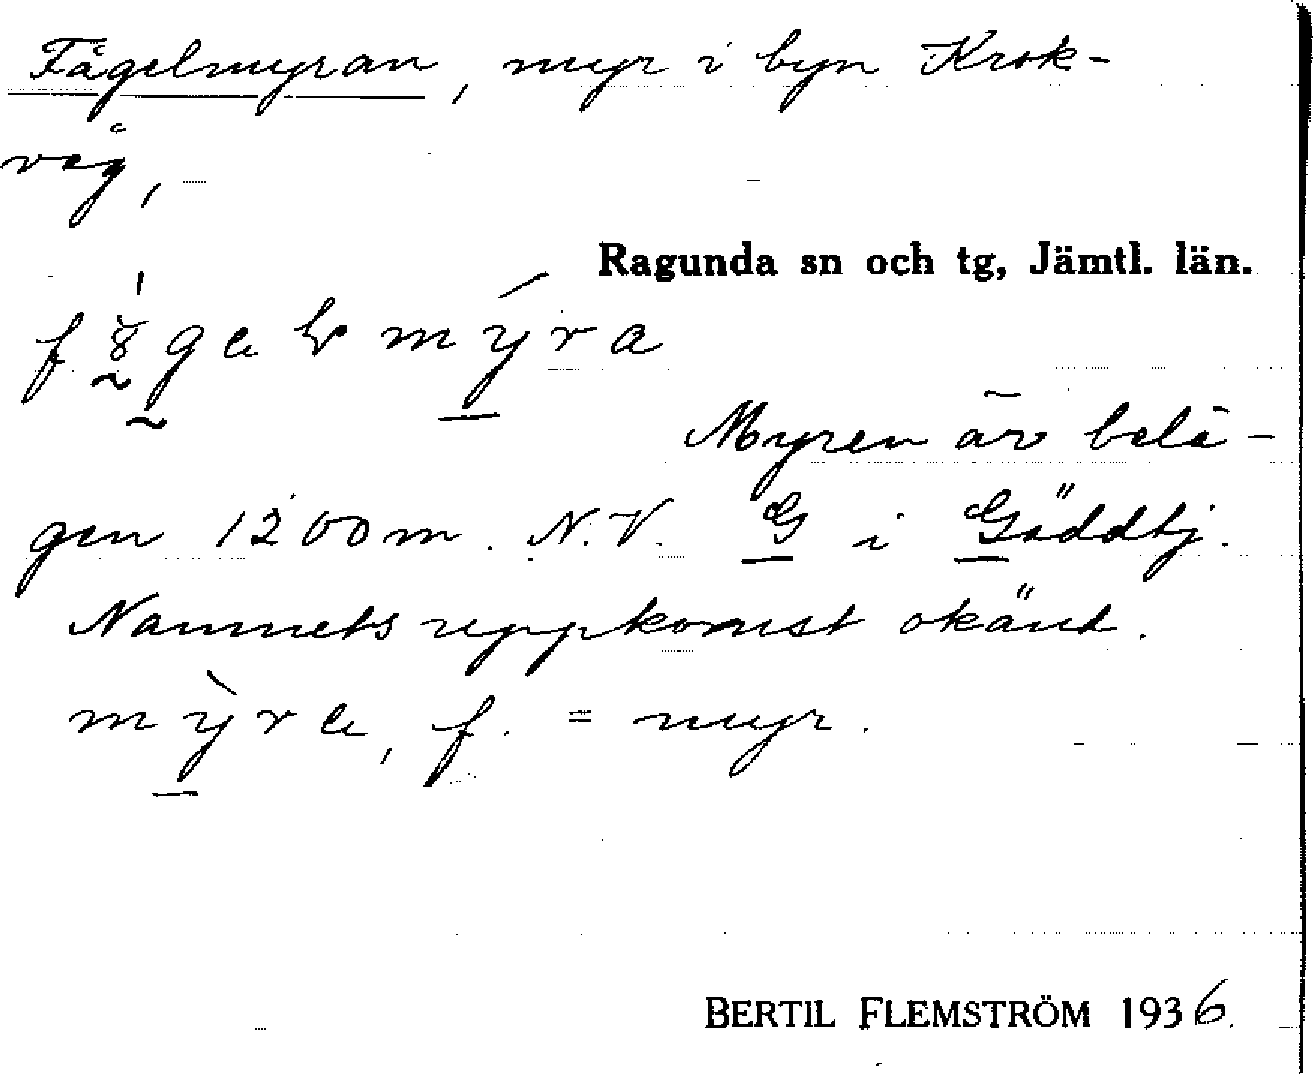 Fågelmyran, myr i byn Krok-
våg,
Ragunda sn och tg, Jämtl. län.
Myren är belä-
gen 1200 m. N.V. G i Gäddtj.
Namnets uppkomst okänt.
m ỳ r e, f. = myr.
BERTIL FLEMSTRÖM 1936.